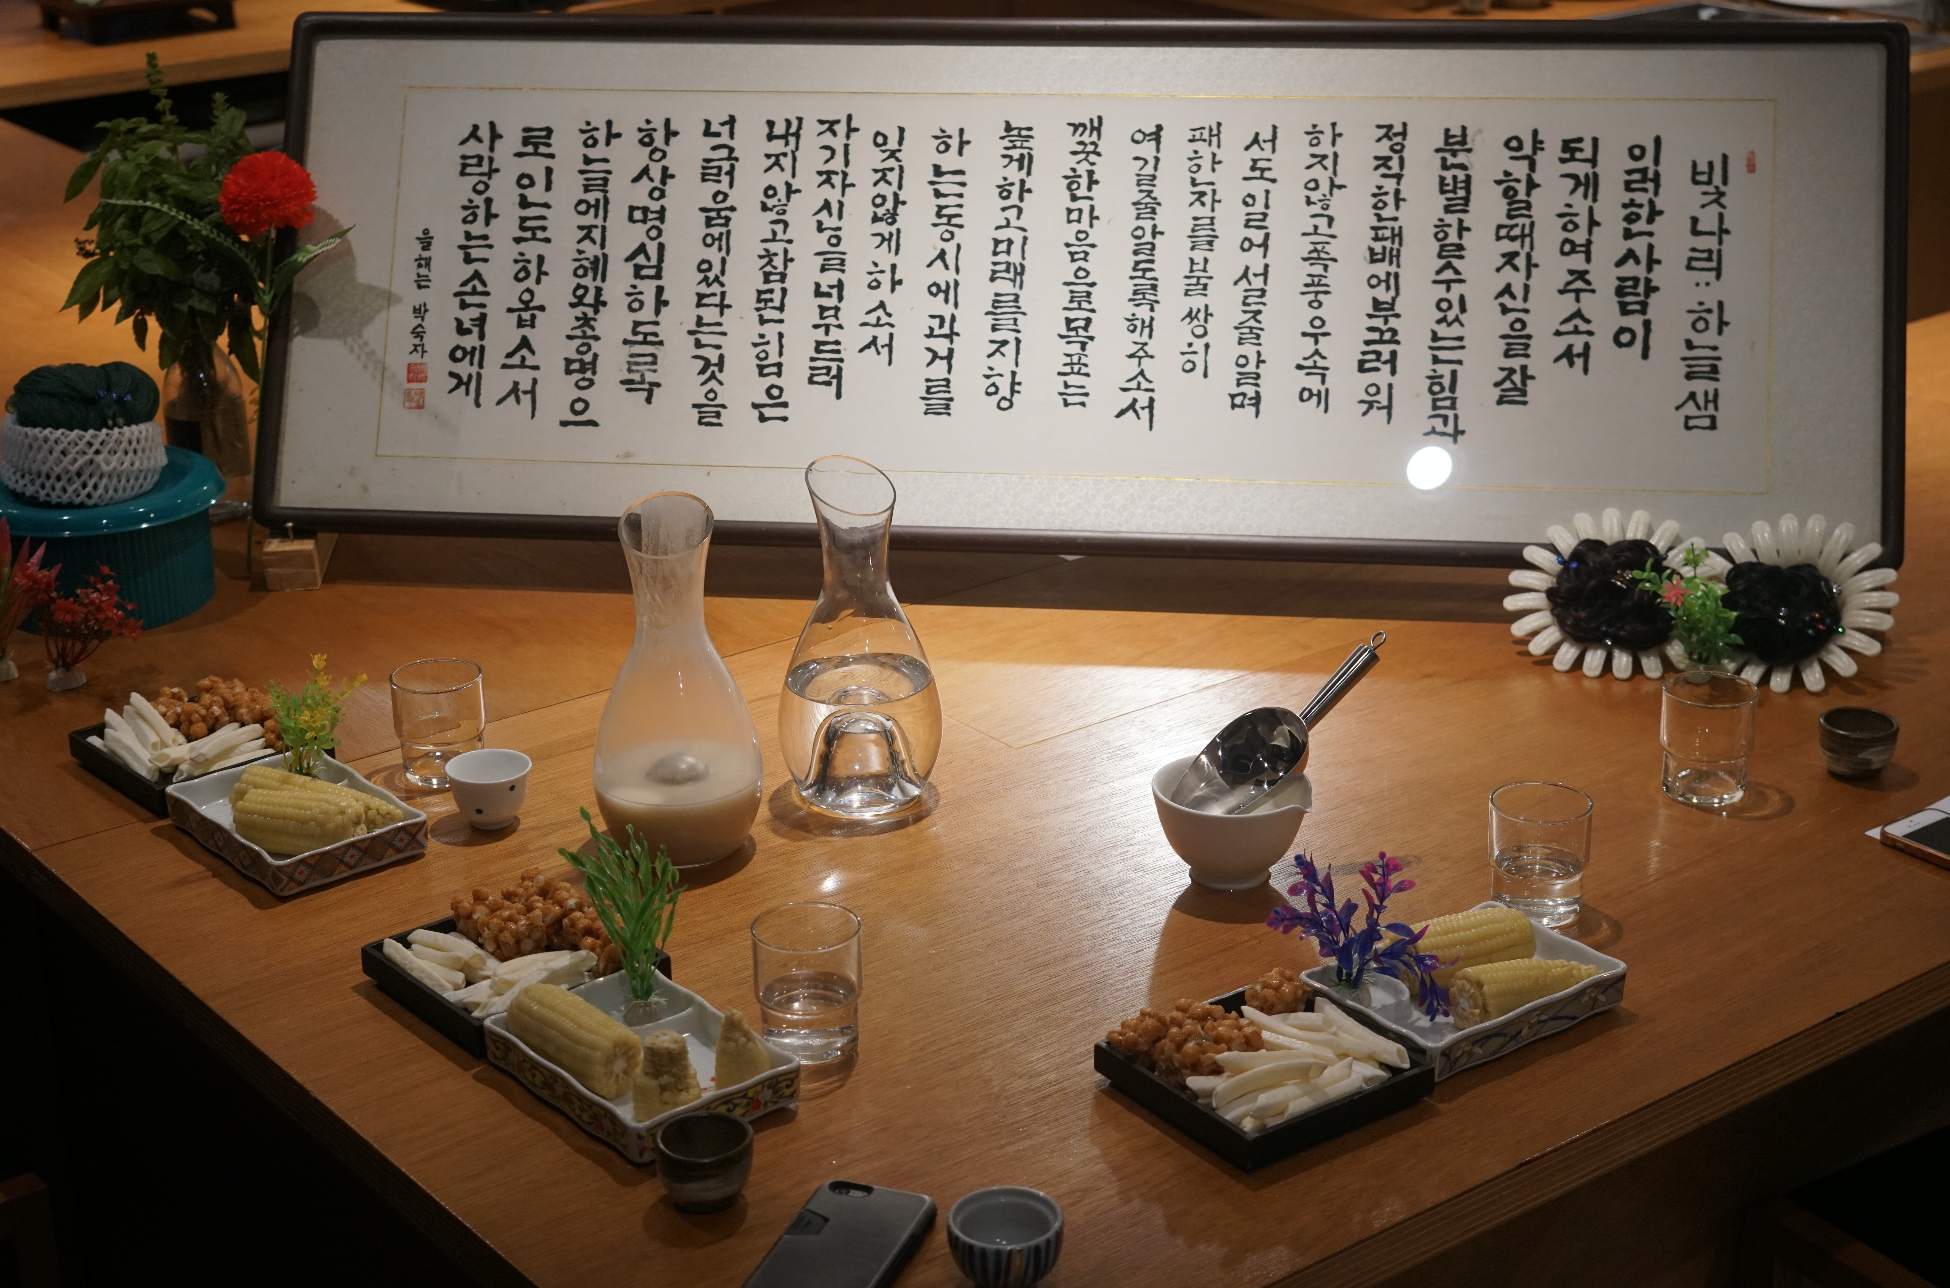 빛나리:: 하늘샘
이러한사람이
되게하여주소서
약할때자신을잘
분별할수있는힘과
정직한패배에부끄러워
하지않고폭풍우속에
서도일어설줄알며
패하는자를불쌍히
여길줄알도록해주소서
깨끗한마음으로목표는
높게하고미래를지향
하는동시에과거를
잊지않게하소서
자기자신을너무드러
내지않고참된힘은
너그러움에있다는것을
항상명심하도록
하늘에지혜와총명으
로인도하옵소서
사랑하는손녀에게
을해는 박숙자